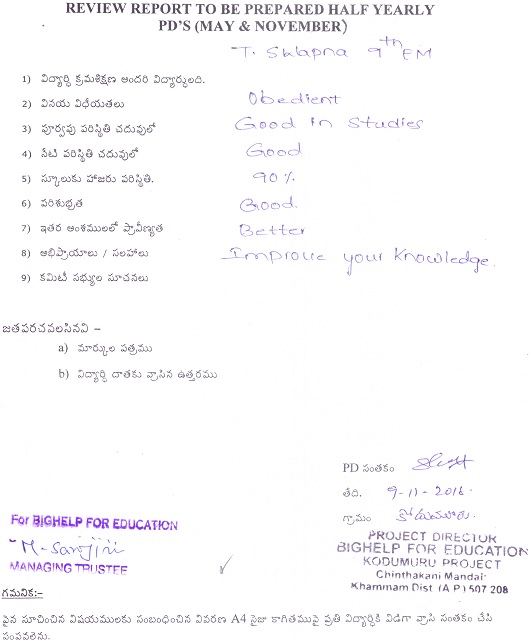 REVIEW REPORT TO BE PREPARED HALF YEARLY
PD'S (MAY & NOVEMBER)
T. Swapna 9th EM
1) విద్యార్థి క్రమశిక్షణ అందరి విద్యార్థులది.
2) వినయ విధేయతలు Obedient
3) పూర్వపు పరిస్థితి చదువులో Good in Studies
4) నేటి పరిస్థితి చదువులో Good
5) స్కూలుకు హాజరు పరిస్థితి. 90%
6) పరిశుభ్రత Good.
7) ఇతర అంశములలో ప్రావీణ్యత Better
8) అభిప్రాయాలు / సలహాలు Improve your Knowledge.
9) కమిటీ సభ్యుల సూచనలు
జతపరచవలసినవి –
a) మార్కుల పత్రము
b) విద్యార్థి దాతకు వ్రాసిన ఉత్తరము
PD సంతకం
తేది. 9-11-2016
గ్రామం కోదుమూరు.
For BIGHELP FOR EDUCATION
M-Sarojini
MANAGING TRUSTEE
PROJECT DIRECTOR
BIGHELP FOR EDUCATION
KODUMURU PROJECT
Chinthakani Mandal
Khammam Dist (A P) 507 208
గమనిక:-
పైన సూచించిన విషయములకు సంబంధించిన వివరణ A4 సైజు కాగితముపై ప్రతి విద్యార్థికి విడిగా వ్రాసి సంతకం చేసి
పంపవలెను.